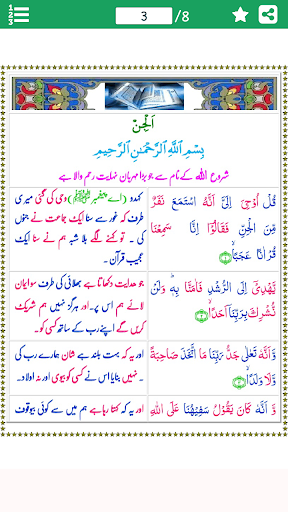 3 /8
اَلْجِنّ
بِسْمِ اللّٰهِ الرَّحْمٰنِ الرَّحِيْمِ
شروع اللہ کے نام سے جو بڑا مہربان نہایت رحم والا ہے
قُلْ اُوْحِىَ اِلَىَّ اَنَّهُ اسْتَمَعَ نَفَرٌ
مِّنَ الْجِنِّ فَقَالُوْٓا اِنَّا سَمِعْنَا
قُرْاٰنًا عَجَبًا ۙ‏﴿۱﴾
کہدو (اے پیغمبر ﷺ) وحی کی گئی میری
طرف کہ غور سے سنا ایک جماعت نے جنوں
کی ۔ تو کہنے لگے بلا شبہ ہم نے سنا ایک
عجیب قرآن ۔
يَّهْدِىْٓ اِلَى الرُّشْدِ فَاٰمَنَّا بِهٖ ؕ وَلَنْ
نُّشْرِكَ بِرَبِّنَآ اَحَدًا ۙ‏﴿۲﴾
جو ہدایت دکھاتا ہے بھلائی کی طرف سو ایمان
لائے ہم اس پر ۔ اور ہرگز نہیں ہم شریک کریں گے
اپنے رب کے ساتھ کسی کو ۔
وَّاَنَّهٗ تَعٰلٰى جَدُّ رَبِّنَا مَا اتَّخَذَ صَاحِبَةً
وَّلَا وَلَدًا ۙ‏﴿۳﴾
اور یہ کہ بہت بلند ہے شان ہمارے رب کی
۔ نہیں بنایا اس نے کسی کو بیوی اور نہ اولاد ۔
وَّ اَنَّهٗ كَانَ يَقُوْلُ سَفِيْهُنَا عَلَى اللّٰهِ
اور یہ کہ کہتا رہا ہے ہم میں سے کوئی بیوقوف